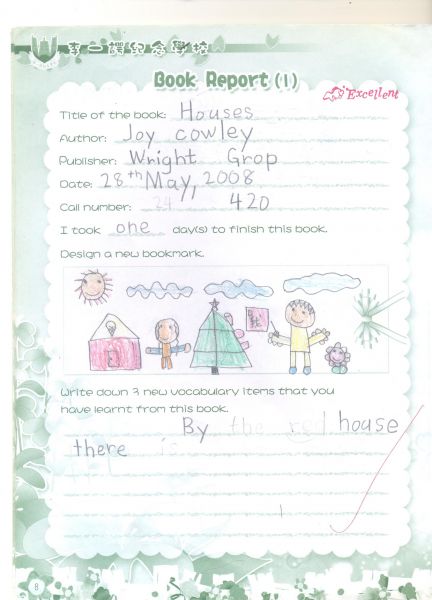 李一諤紀念學校
Book Report (1)
Excellent
Title of the book: Houses
Author: Joy cowley
Publisher: Wright Grop
Date: 28th May, 2008
Call number: 24 420
I took one day(s) to finish this book.
Design a new bookmark.
Write down 3 new vocabulary items that you
have learnt from this book.
By the red house
there is
8